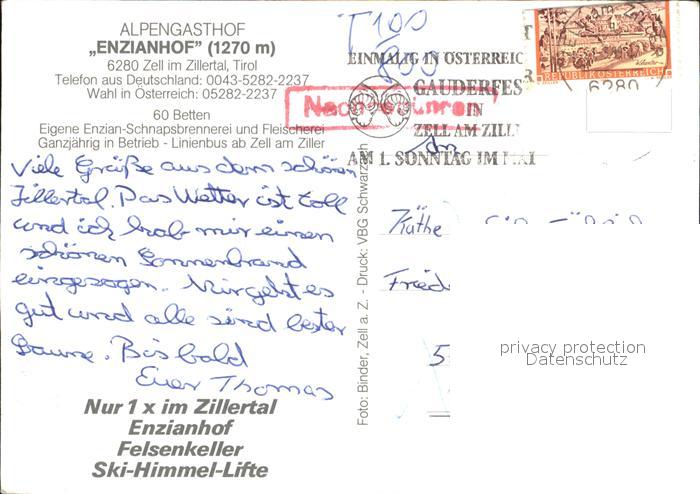 ALPENGASTHOF
„ENZIANHOF” (1270 m)
6280 Zell im Zillertal, Tirol
Telefon aus Deutschland: 0043-5282-2237
Wahl in Österreich: 05282-2237
60 Betten
Eigene Enzian-Schnapsbrennerei und Fleischerei
Ganzjährig in Betrieb - Linienbus ab Zell am Ziller
Viele Grüße aus dem schönen
Zillertal. Das Wetter ist toll
und ich hab mir einen
schönen Sonnenbrand
eingezogen. Mir geht es
gut und alle sind bester
Laune. Bis bald
Euer Thomas
Nur 1 x im Zillertal
Enzianhof
Felsenkeller
Ski-Himmel-Lifte
Foto: Binder, Zell a. Z. - Druck: VBG Schwarzach
T 100
800
EINMALIG IN ÖSTERREIC
GAUDERFES
IN
ZELL AM ZILL
AM 1. SONNTAG IM MAI
REPUBLIK ÖSTERREICH
6280
An
Käthe
Fried
5
privacy protection
Datenschutz